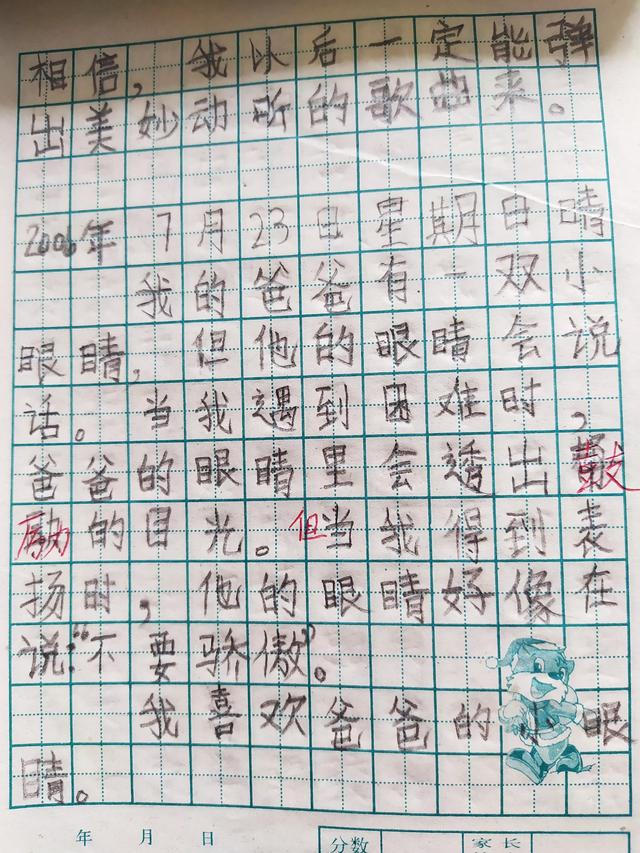 相信,我以后一定能弹
出美妙动听的歌曲来。
2006年7月23日星期日晴
我的爸爸有一双小
眼睛,但他的眼睛会说
话。当我遇到困难时,
爸爸的眼睛里会透出鼓
励的目光。但当我得到表
扬时,他的眼睛好像在
说:“不要骄傲”。
我喜欢爸爸的小眼
睛。
年 月 日 分数 家长